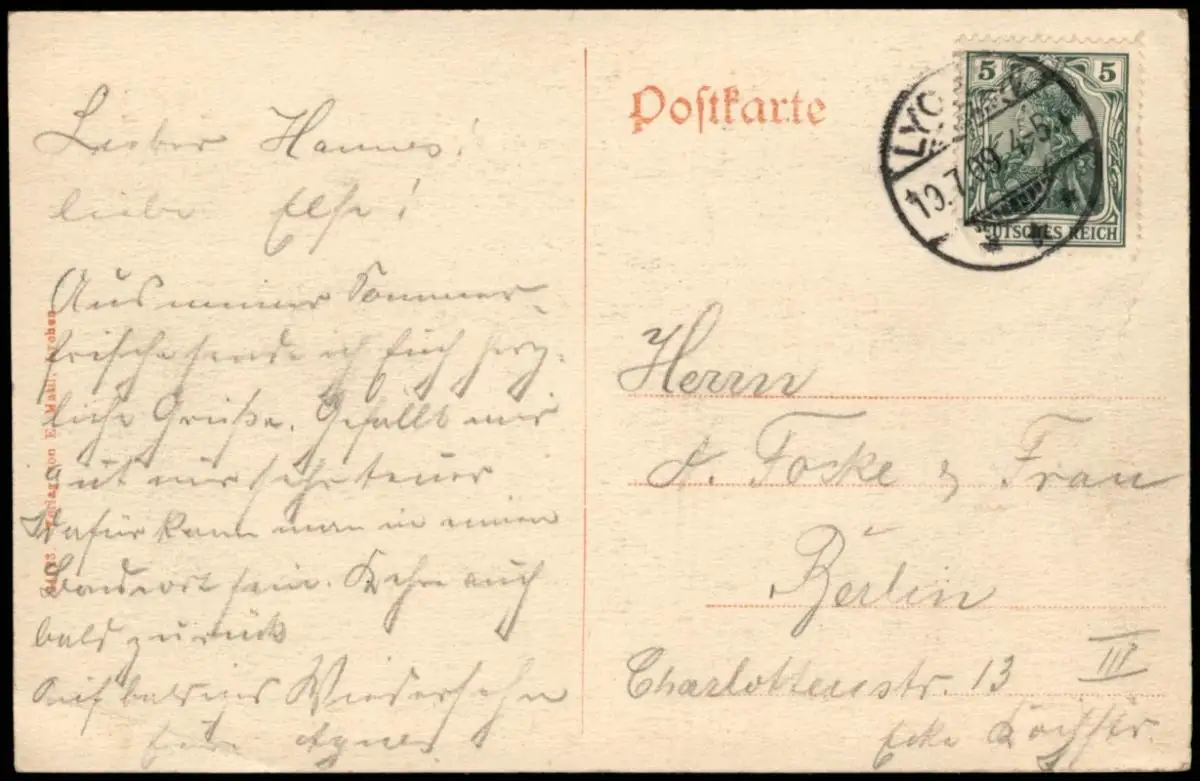 Lieber Hannes!
liebe Else!
Aus meiner Sommer-
frische sende ich Euch herz-
liche Grüße. Gefällt mir
gut nur sehr teuer
dafür kann man in einem
Badeort sein. Kehre auch
bald zurück
Auf baldiges Wiedersehn
Eure Agnes
Verlag von E. Mahl,
Postkarte
5 5
DEUTSCHES REICH
LYCK
10.7.09. 4-5
Herrn
A. Foske & Frau
Berlin
Charlottenstr. 13 III
Ecke Kochstr.